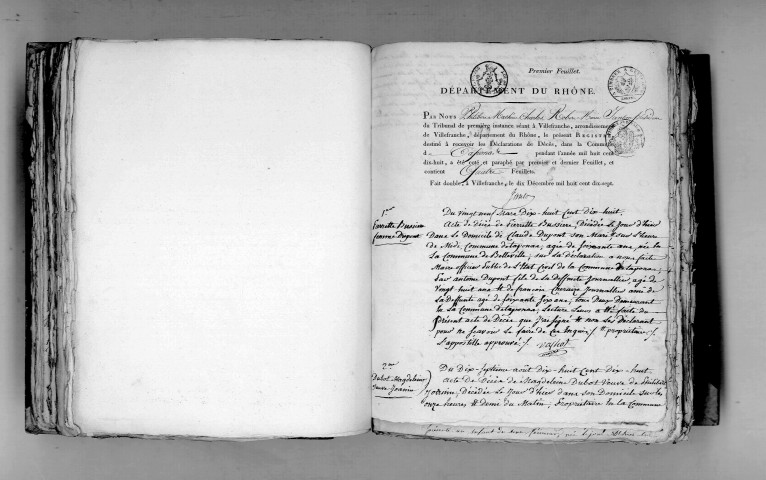 Premier Feuillet.
DÉPARTEMENT DU RHÔNE.
PAR NOUS
du Tribunal de première instance séant à Villefranche, arrondissement
de Villefranche, département du Rhône, le présent REGISTRE
destiné à recevoir les Déclarations de Décès, dans la Commune
d pendant l'année mil huit cent
dix-huit, a été coté et paraphé par premier et dernier Feuillet, et
contient Quatre Feuillets.
Fait double, à Villefranche, le dix Décembre mil huit cent dix-sept.
1.er
Pierrette Bussiere
femme Dupont
Du vingt neuf mars Dix-huit Cent dix-huit.
Acte de décès de Pierrette Bussiere, décédée Le jour d'hier
Dans Le Domicile de Claude Dupont son Mari sur l'heure
de Midi, Commune de taponas; agée de soixante ans, née En
La Commune de Belleville; sur La déclaration a nous faite
Maire officier Public de L'Etat Civil de la Commune De taponas;
Par antoine Dupont fils de La Deffunte Journallier, agé de
Vingt huit ans Et de françois Journallier ami de
La deffunte agé de soixante six ans; tous deux demeurant
En La Commune de taponas; Lecture Leurs a Eté faite du
présent acte de Décès que J'ai signé Et non Les Déclarant
pour ne sçavoir Le faire de Ce Enquis /. propriétaire /.
L'appostille approuvé /.
2.me
Dubot Magdeleine
veuve Joannin
Du Dix-septieme août Dix-huit Cent Dix-huit
Acte de Décès de Magdeleine Dubot Veuve de
Joannin; décédée Le Jour d'hier dans son Domicile sur les
onze heures Et demi du Matin; Propriétaire En La Commune